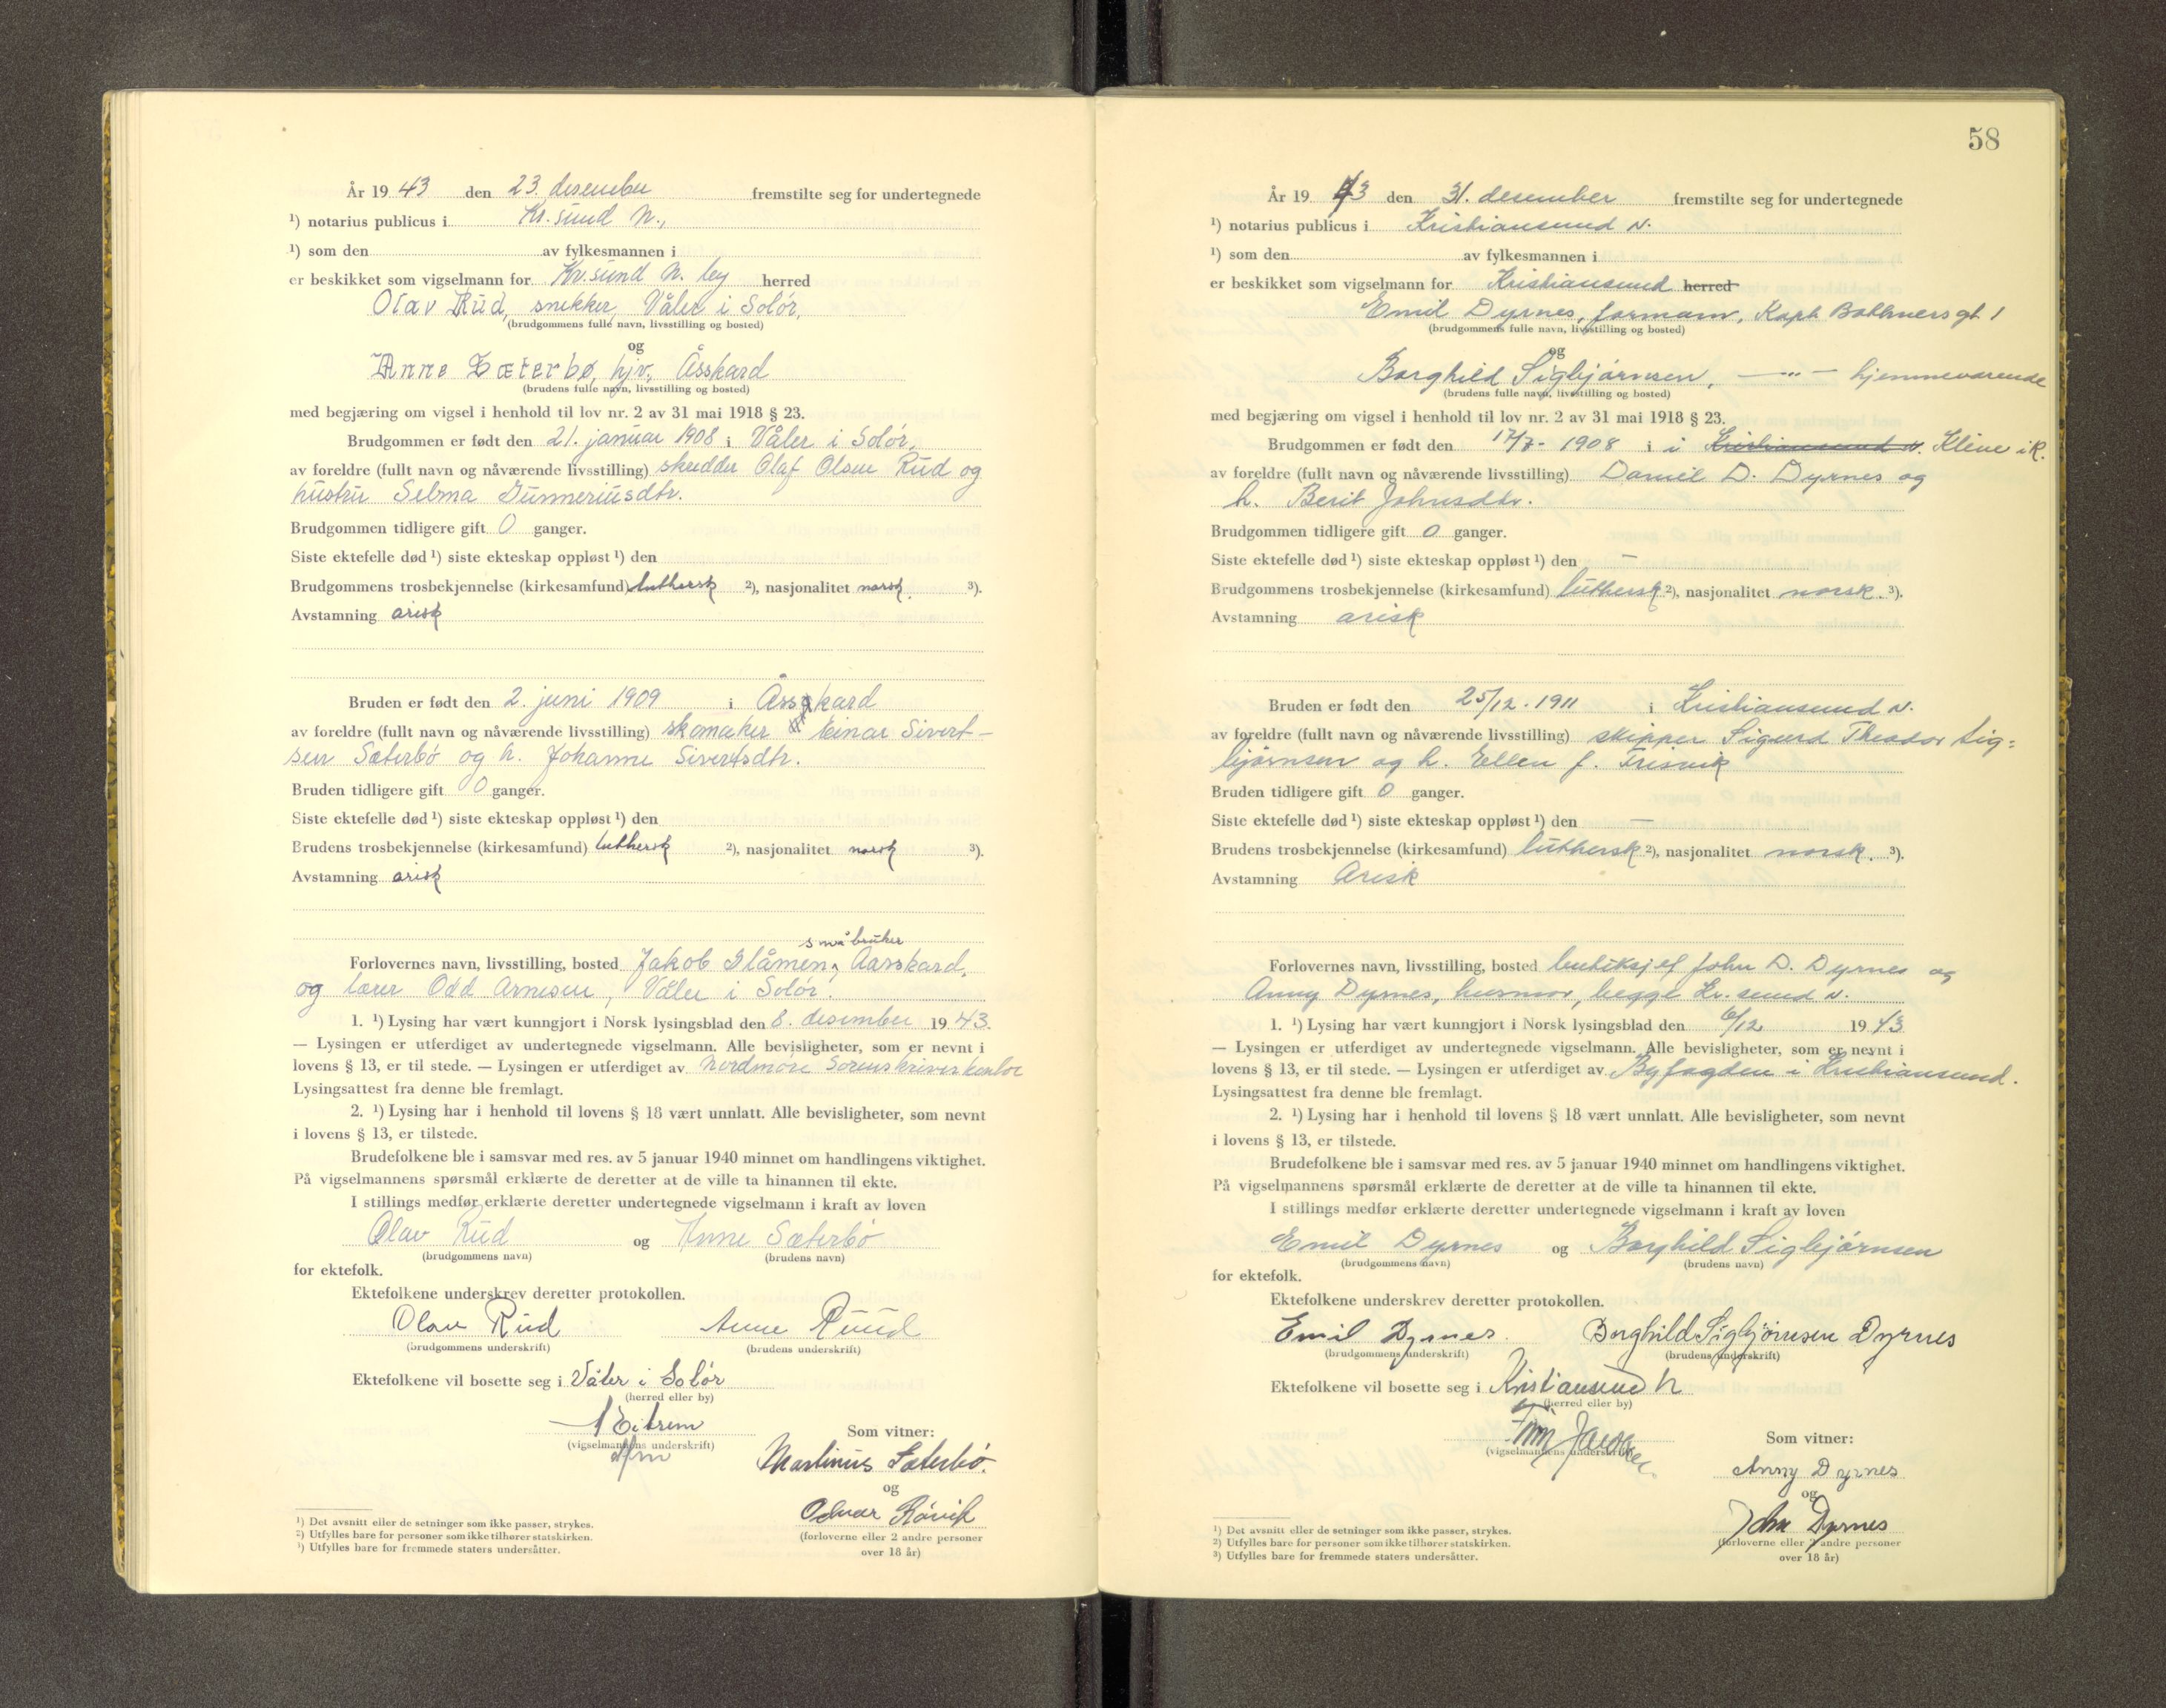 År 19 43 den 23. desember fremstilte seg for undertegnede
¹) notarius publicus i Kr.sund N.,
¹) som den av fylkesmannen i
er beskikket som vigselmann for Kr.sund N. by herred
Olav Rud, snekker, Våler i Solør,
(brudgommens fulle navn, livsstilling og bosted)
og
Anne Sæterbø, hjv., Åsskard
(brudens fulle navn, livsstilling og bosted)
med begjæring om vigsel i henhold til lov nr. 2 av 31 mai 1918 § 23.
Brudgommen er født den 21. januar 1908 i Våler i Solør.
av foreldre (fullt navn og nåværende livsstilling) skredder Olaf Olsen Rud og
hustru Selma Gunneriusdtr.
Brudgommen tidligere gift 0 ganger.
Siste ektefelle død ¹) siste ekteskap oppløst ¹) den
Brudgommens trosbekjennelse (kirkesamfund) luthersk ²), nasjonalitet norsk ³).
Avstamning arisk
Bruden er født den 2. juni 1909 i Åsskard
av foreldre (fullt navn og nåværende livsstilling) skomaker Einar Sivert-
sen Sæterbø og h. Johanne Sivertsdtr.
Bruden tidligere gift 0 ganger.
Siste ektefelle død ¹) siste ekteskap oppløst ¹) den
Brudens trosbekjennelse (kirkesamfund) luthersk ²), nasjonalitet norsk ³).
Avstamning arisk
småbruker
Forlovernes navn, livsstilling, bosted Jakob Glåmen, Aasskard,
og lærer Odd Arnesen, Våler i Solør.
1. ¹) Lysing har vært kunngjort i Norsk lysingsblad den 8. desember 19 43.
— Lysingen er utferdiget av undertegnede vigselmann. Alle bevisligheter, som er nevnt i
lovens § 13, er til stede. — Lysingen er utferdiget av Nordmøre Sorenskriverkontor
Lysingsattest fra denne ble fremlagt.
2. ¹) Lysing har i henhold til lovens § 18 vært unnlatt. Alle bevisligheter, som nevnt
i lovens § 13, er tilstede.
Brudefolkene ble i samsvar med res. av 5 januar 1940 minnet om handlingens viktighet.
På vigselmannens spørsmål erklærte de deretter at de ville ta hinannen til ekte.
I stillings medfør erklærte deretter undertegnede vigselmann i kraft av loven
Olav Rud og Anne Sæterbø
(brudgommens navn) (brudens navn)
for ektefolk.
Ektefolkene underskrev deretter protokollen.
Olav Rud Anne Ruud
(brudgommens underskrift) (brudens underskrift)
Ektefolkene vil bosette seg i Våler i Solør
(herred eller by)
Eitrem
(vigselmannens underskrift)
Som vitner:
Martinus Sæterbø.
og
Odvar Røvik
(forloverne eller 2 andre personer
over 18 år)
¹) Det avsnitt eller de setninger som ikke passer, strykes.
²) Utfylles bare for personer som ikke tilhører statskirken.
³) Utfylles bare for fremmede staters undersåtter.
58
År 19 43 den 31. desember fremstilte seg for undertegnede
¹) notarius publicus i Kristiansund N.
¹) som den av fylkesmannen i
er beskikket som vigselmann for Kristiansund herred
Emil Dyrnes, formann, Kapt. Bothners gt 1
(brudgommens fulle navn, livsstilling og bosted)
og
Borghild Sigbjørnsen, —„— hjemmeværende
(brudens fulle navn, livsstilling og bosted)
med begjæring om vigsel i henhold til lov nr. 2 av 31 mai 1918 § 23.
Brudgommen er født den 17/7- 1908 i i Kristiansund N. Kleive i R.
av foreldre (fullt navn og nåværende livsstilling) Daniel D. Dyrnes og
h. Berit Johnsdtr.
Brudgommen tidligere gift 0 ganger.
Siste ektefelle død ¹) siste ekteskap oppløst ¹) den —
Brudgommens trosbekjennelse (kirkesamfund) luthersk ²), nasjonalitet norsk. ³).
Avstamning arisk
Bruden er født den 25/12. 1911 i Kristiansund N.
av foreldre (fullt navn og nåværende livsstilling) skipper Sigurd Theodor Sig=
bjørnsen og h. Ellen f. Frisvik
Bruden tidligere gift 0 ganger.
Siste ektefelle død ¹) siste ekteskap oppløst ¹) den —
Brudens trosbekjennelse (kirkesamfund) luthersk ²), nasjonalitet norsk. ³).
Avstamning Arisk
Forlovernes navn, livsstilling, bosted butiksjef John D. Dyrnes og
Anny Dyrnes, husmor, begge Kr.sund N.
1. ¹) Lysing har vært kunngjort i Norsk lysingsblad den 6/12 19 43
— Lysingen er utferdiget av undertegnede vigselmann. Alle bevisligheter, som er nevnt i
lovens § 13, er til stede. — Lysingen er utferdiget av Byfogden i Kristiansund.
Lysingsattest fra denne ble fremlagt.
2. ¹) Lysing har i henhold til lovens § 18 vært unnlatt. Alle bevisligheter, som nevnt
i lovens § 13, er tilstede.
Brudefolkene ble i samsvar med res. av 5 januar 1940 minnet om handlingens viktighet.
På vigselmannens spørsmål erklærte de deretter at de ville ta hinannen til ekte.
I stillings medfør erklærte deretter undertegnede vigselmann i kraft av loven
Emil Dyrnes og Borghild Sigbjørnsen
(brudgommens navn) (brudens navn)
for ektefolk.
Ektefolkene underskrev deretter protokollen.
Emil Dyrnes. Borghild Sigbjørnsen Dyrnes
(brudgommens underskrift) (brudens underskrift)
Ektefolkene vil bosette seg i Kristiansund N
(herred eller by)
(vigselmannens underskrift)
Som vitner:
Anny Dyrnes
og
John Dyrnes
(forloverne eller 2 andre personer
over 18 år)
¹) Det avsnitt eller de setninger som ikke passer, strykes.
²) Utfylles bare for personer som ikke tilhører statskirken.
³) Utfylles bare for fremmede staters undersåtter.